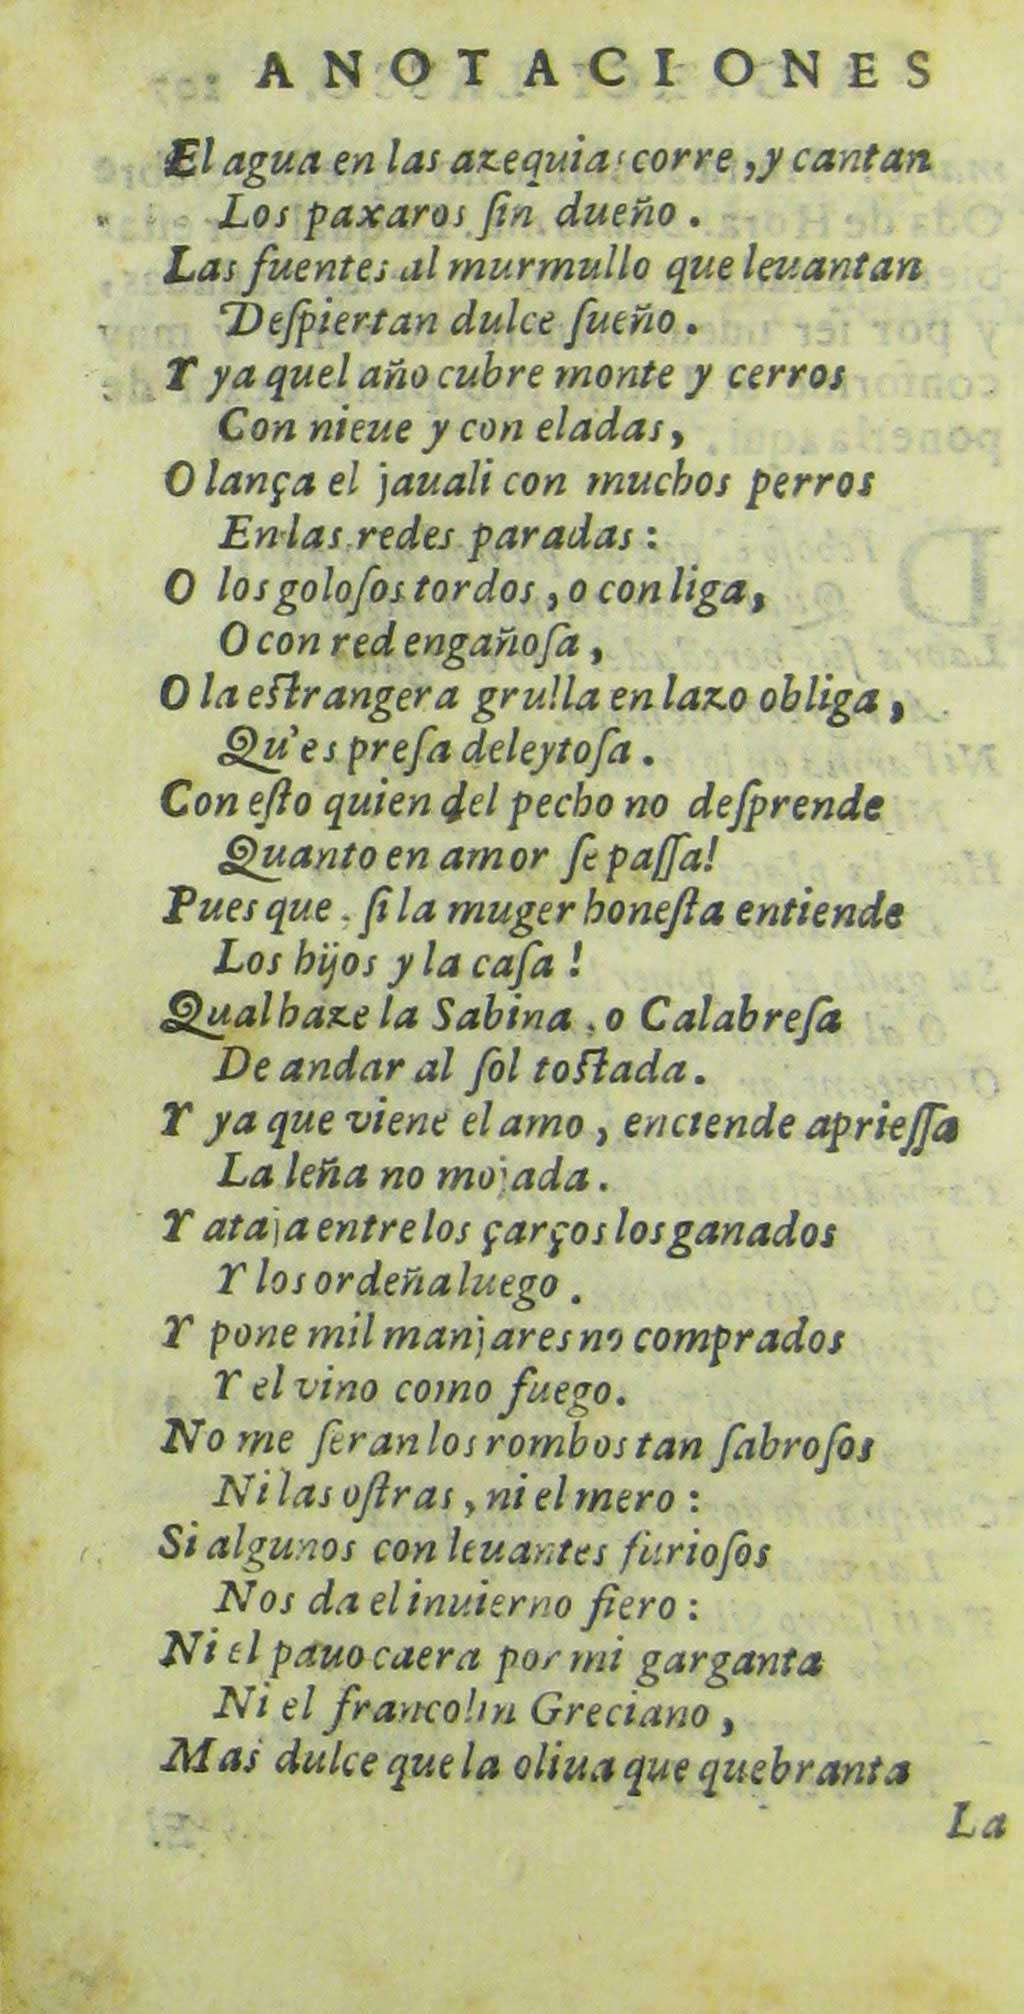 ANOTACIONES
El agua en las azequias corre, y cantan
Los paxaros ſin dueño.
Las fuentes al murmullo que leuantan
Deſpiertan dulce ſueño.
Y ya quel año cubre monte y cerros
Con nieue y con eladas,
O lança el jauali con muchos perros
En las redes paradas:
O los goloſos tordos, o con liga,
O con red engañoſa,
O la eſtrangera grulla en lazo obliga,
Qu'es preſa deleytoſa.
Con eſto quien del pecho no deſprende
Quanto en amor ſe paſſa!
Pues que, ſi la muger honeſta entiende
Los hijos y la caſa!
Qual haze la Sabina, o Calabreſa
De andar al ſol toſtada.
Y ya que viene el amo, enciende aprieſſa
La leña no mojada.
Y ataja entre los çarços los ganados
Y los ordeña luego.
Y pone mil manjares no comprados
Y el vino como fuego.
No me ſeran los rombos tan ſabroſos
Ni las oſtras, ni el mero:
Si algunos con leuantes furioſos
Nos da el inuierno fiero:
Ni el pauo caera por mi garganta
Ni el francolin Greciano,
Mas dulce que la oliua que quebranta
La